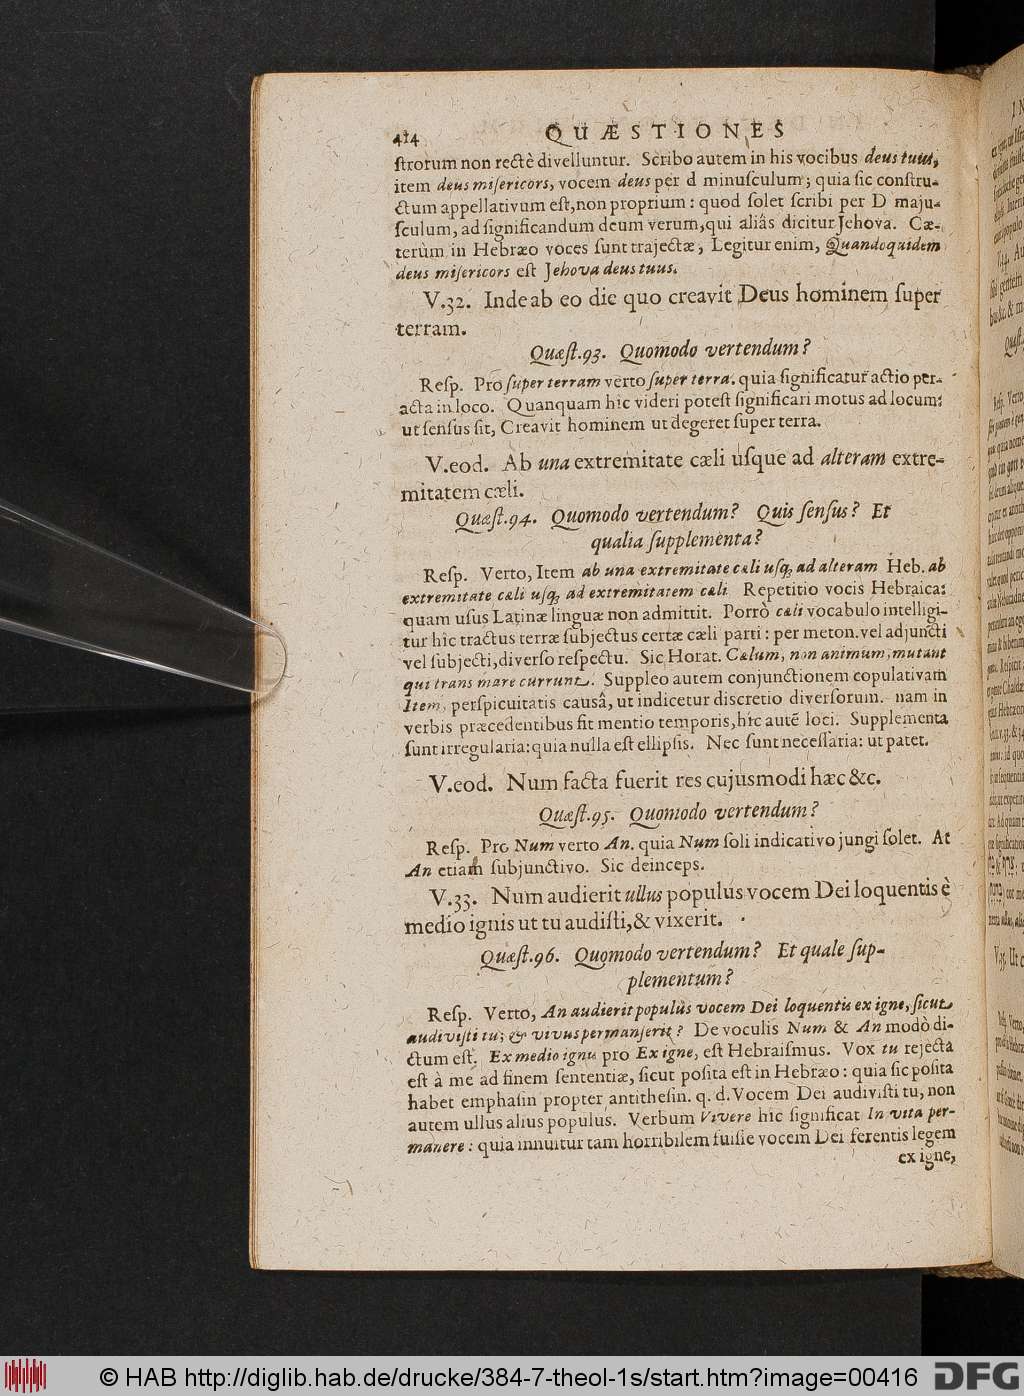 414 QUÆSTIONES
ſtrorum non rectè divelluntur. Scribo autem in his vocibus deus tuus,
item deus miſericors, vocem deus per d minuſculum; quia ſic conſtru-
ctum appellativum eſt, non proprium: quod ſolet ſcribi per D maju-
ſculum, ad ſignificandum deum verum, qui aliâs dicitur Jehova. Cæ-
terùm in Hebræo voces ſunt trajectæ; Legitur enim, Quandoquidem
deus miſericors eſt Jehova deus tuus.
V.32. Inde ab eo die quo creavit Deus hominem ſuper
terram.
Quæſt.93. Quomodo vertendum?
Reſp. Pro ſuper terram verto ſuper terra. quia ſignificatur actio per-
acta in loco. Quanquam hîc videri poteſt ſignificari motus ad locum:
ut ſenſus ſit, Creavit hominem ut degeret ſuper terra.
V.eod. Ab una extremitate cæli uſque ad alteram extre-
mitatem cæli.
Quæſt.94. Quomodo vertendum? Quis ſenſus? Et
qualia ſupplementa?
Reſp. Verto, Item ab una extremitate cæli uſq; ad alteram Heb. ab
extremitate cæli uſq; ad extremitatem cæli. Repetitio vocis Hebraica:
quam uſus Latinæ linguæ non admittit. Porrò cæli vocabulo intelligi-
tur hîc tractus terræ ſubjectus certæ cæli parti: per meton. vel adjuncti
vel ſubjecti, diverſo reſpectu. Sic Horat. Cælum, non animum, mutant
qui trans mare currunt. Suppleo autem conjunctionem copulativam
Item, perſpicuitatis causâ, ut indicetur diſcretio diverſorum. nam in
verbis præcedentibus fit mentio temporis, hîc autẽ loci. Supplementa
ſunt irregularia: quia nulla eſt ellipſis. Nec ſunt neceſſaria: ut patet.
V.eod. Num facta fuerit res cujusmodi hæc &c.
Quæſt.95. Quomodo vertendum?
Reſp. Pro Num verto An. quia Num ſoli indicativo jungi ſolet. At
An etiam ſubjunctivo. Sic deinceps.
V.33. Num audierit ullus populus vocem Dei loquentis è
medio ignis ut tu audiſti, & vixerit.
Quæſt.96. Quomodo vertendum? Et quale ſup-
plementum?
Reſp. Verto, An audierit populus vocem Dei loquentis ex igne, ſicut
audiviſti tu; & vivus permanſerit? De voculis Num & An modò di-
ctum eſt. Ex medio ignis pro Ex igne, eſt Hebraiſmus. Vox tu rejecta
eſt à me ad finem ſententiæ, ſicut poſita eſt in Hebræo: quia ſic poſita
habet emphaſin propter antitheſin. q. d. Vocem Dei audiviſti tu, non
autem ullus alius populus. Verbum Vivere hîc ſignificat In vita per-
manere: quia innuitur tam horribilem fuiſſe vocem Dei ferentis legem
ex igne,
© HAB http://diglib.hab.de/drucke/384-7-theol-1s/start.htm?image=00416
DFG